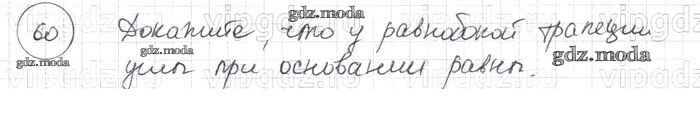 60 Докажите, что у равнобокой трапеции
углы при основании равны.
gdz.moda
gdz.moda
gdz.moda
gdz.moda
gdz.moda